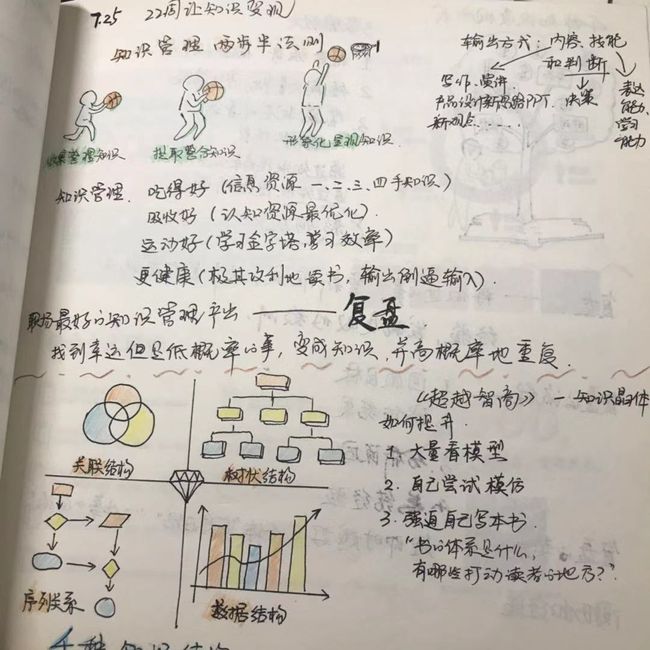 7.25 22周让知识变现
知识管理 两步半法则
收集管理知识
提取整合知识
形象化呈现知识
输出方式：内容、技能
和判断
写作、演讲
产品设计新思路PPT、
新观点……
决策
表达
能力、
学习
能力
知识管理. 吃得好（信息资源 一.二.三.四手知识）
吸收好（认知资源最优化）.
运动好（学习金字塔，学习效率）
更健康（极其功利地读书，输出倒逼输入）.
职场最好的知识管理产出 ——— 复盘
找到幸运但是低概率的事，变成知识，并高概率地重复.
关联结构
树状结构
序列关系
数据结构
《超越智商》—知识晶体
如何提升.
1. 大量看模型
2. 自己尝试模仿
3. 强迫自己写本书.
“书的体系是什么，
有哪些打动读者的地方？”